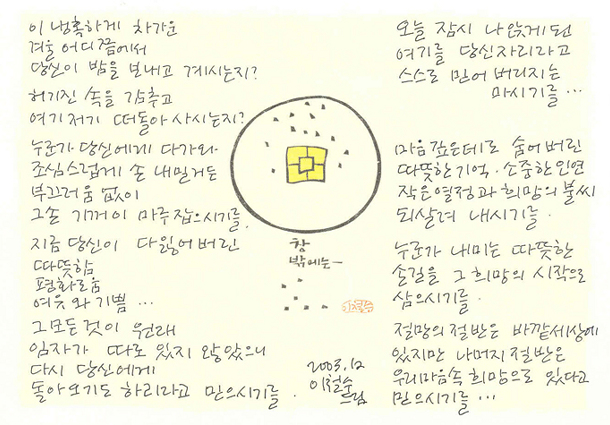 이 냉혹하게 차가운
겨울 어디쯤에서
당신이 밤을 보내고 계시는지?
허기진 속을 감추고
여기저기 떠돌아 사시는지?
누군가 당신에게 다가와
조심스럽게 손 내밀거든
부끄러움 없이
그손 기꺼이 마주잡으시기를.
지금 당신이 다 잃어버린
따뜻함
평화로움
여유와 기쁨 ...
그 모든것이 원래
임자가 따로 있지 않았으니
다시 당신에게
돌아오기도 하리라고 믿으시기를.
창
밖에는—
2003.12
이철수
드림
오늘 잠시 나앉게 된
여기를 당신자리라고
스스로 믿어 버리지는
마시기를 ...
마음 깊은데로 숨어버린
따뜻한 기억·소중한 인연
작은 열정과 희망의 불씨
되살려 내시기를.
누군가 내미는 따뜻한
손길을 그 희망의 시작으로
삼으시기를.
절망의 절반은 바깥세상에
있지만 나머지 절반은
우리마음속 희망으로 있다고
믿으시기를 ...